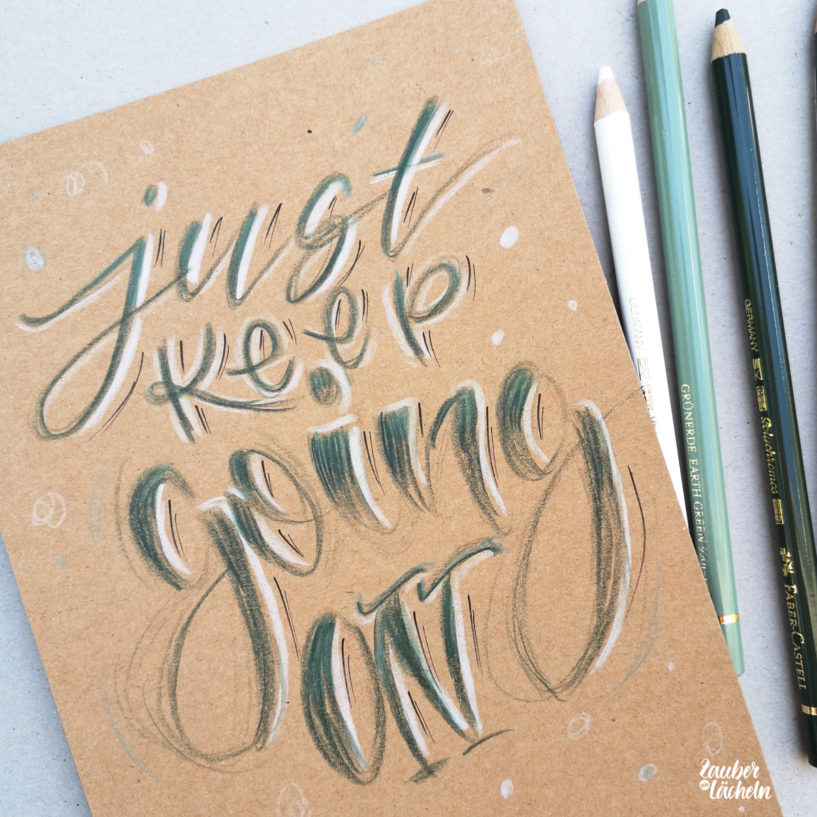 just
keep
going
ON
GERMANY
GRÜNERDE EARTH GREEN
GERMANY
Polychromos
FABER-CASTELL
Zauber
Lächeln